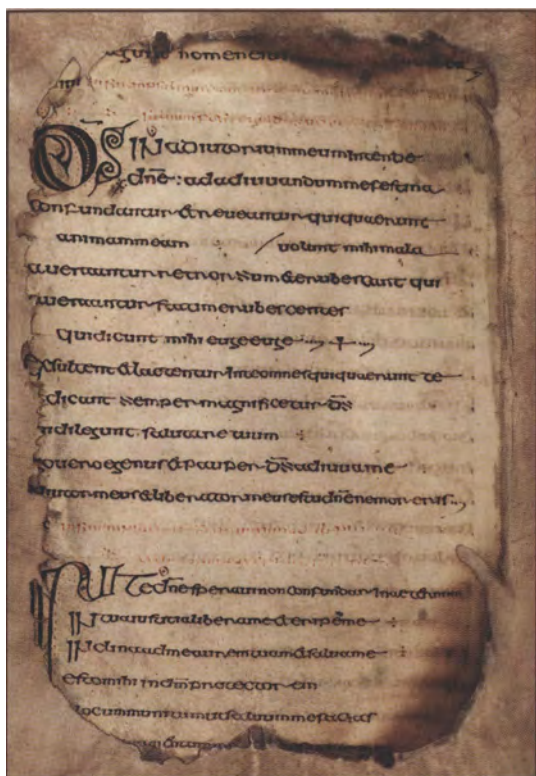 gunt nomen eius
DS IN adiutorium meum intende
dne : ad adiuuandum me festina
confundantur & reueantur qui quaerunt
animam meam / uolunt mihi mala
auertantur retrorsum & erubescant qui
auertantur statim erubescentes
qui dicunt mihi euge euge
exsultent & laetentur in te omnes qui quaerunt te
dicant semper magnificetur ds
diligunt salutare tuum
uero egenus & pauper ds adiuua me
adiutor meus & liberator meus es tu dne ne moreris
IN te dne speraui non confundar in aeternum
IN tua iustitia libera me & eripe me
INclina ad me aurem tuam & salua me
esto mihi in dm protector em
locum munitum ut saluum me facias